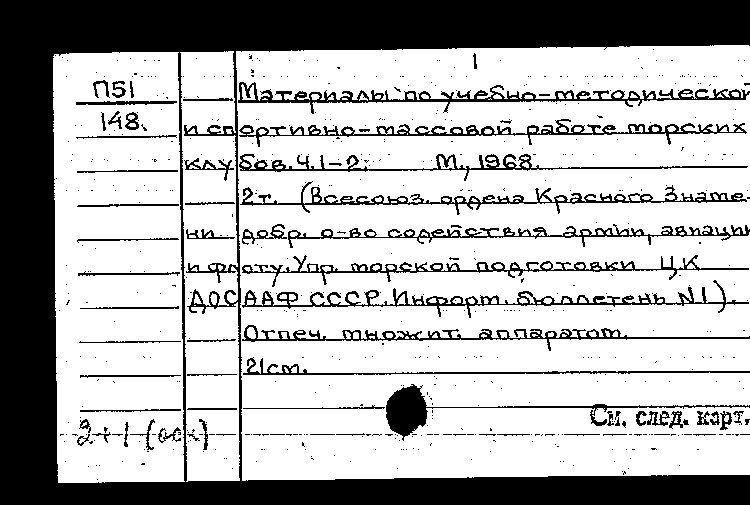 1
П51 Материалы по учебно-методической
148. и спортивно-массовой работе морских
клубов. Ч.1-2. М., 1968.
2т. (Всесоюз. ордена Красного Знаме-
ни добр. о-во содействия армии, авиации
и флоту. Упр. морской подготовки ЦК
ДОСААФ СССР. Информ. бюллетень N1).
Отпеч. множит. аппаратом.
21см.
См. след. карт.
2+1